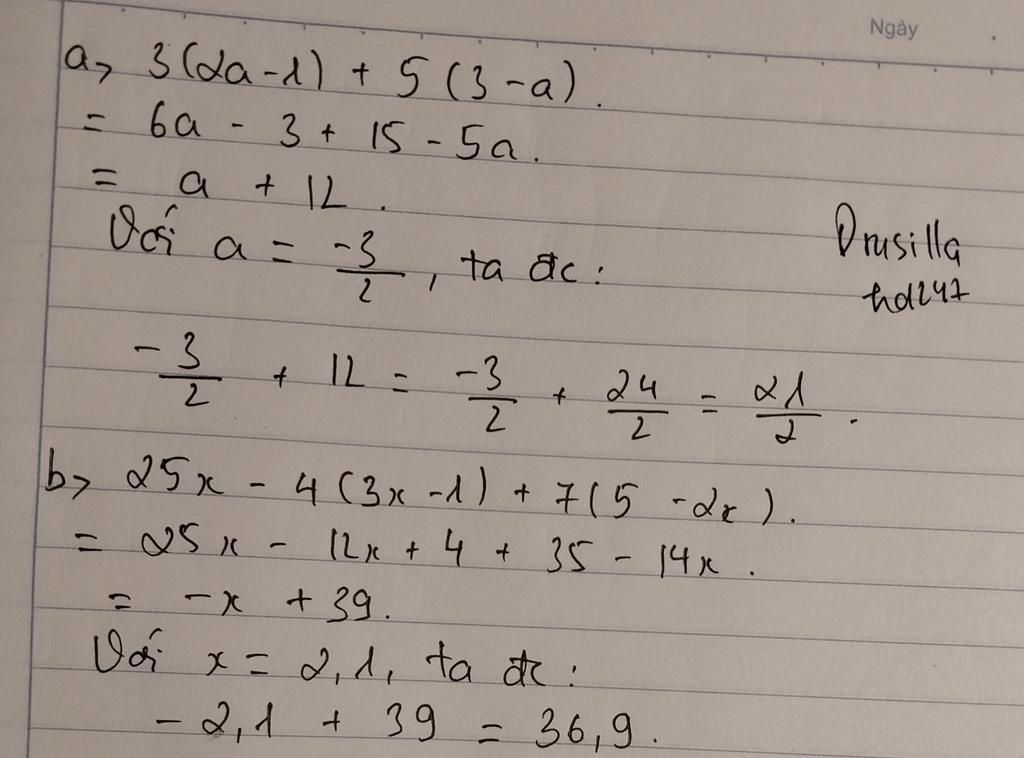 Ngày
a, 3(2a-1) + 5(3-a).
= 6a - 3 + 15 - 5a.
= a + 12.
Với a = -3/2, ta đc:
Drusilla
hd247
-3/2 + 12 = -3/2 + 24/2 = 21/2.
b, 25x - 4(3x-1) + 7(5-2x).
= 25x - 12x + 4 + 35 - 14x.
= -x + 39.
Với x = 2,1, ta đc:
-2,1 + 39 = 36,9.